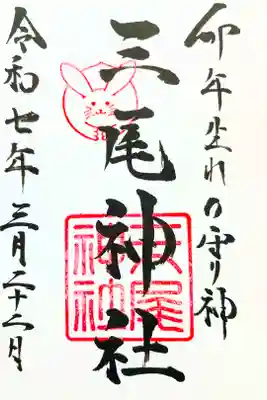 卯年生れの守り神
三尾神社
令和七年三月二十二日
三尾
神社